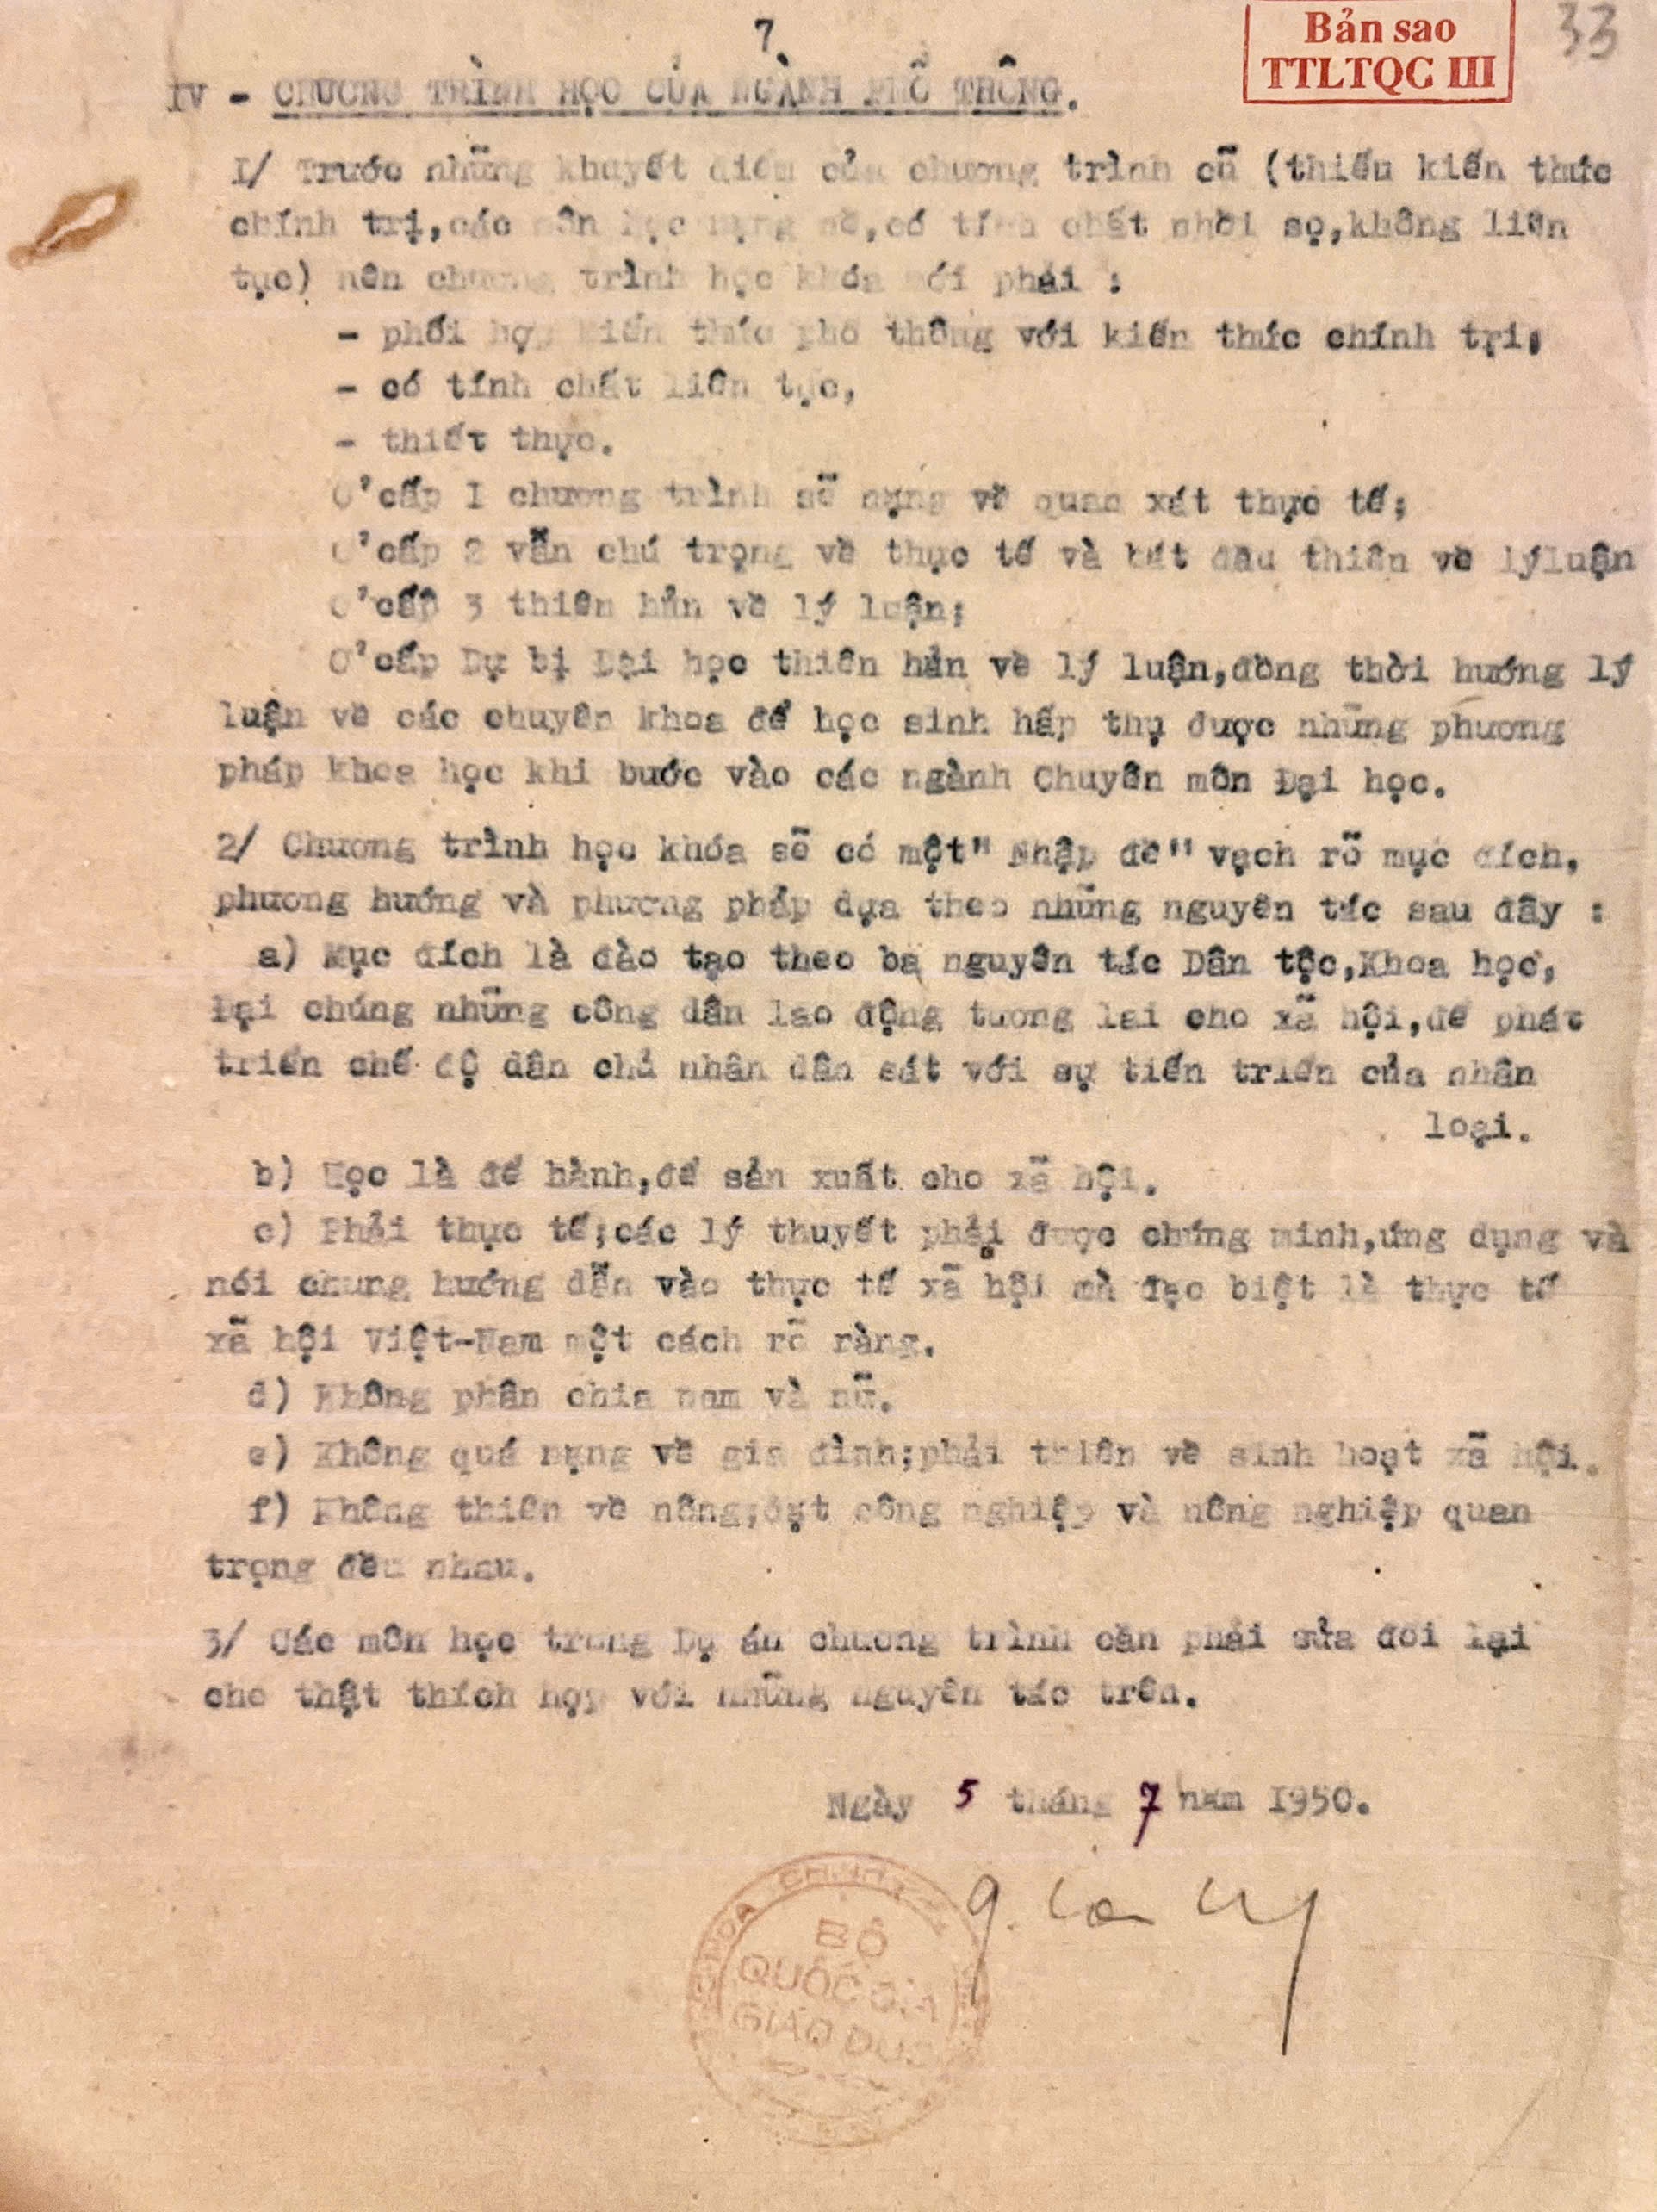 7
Bản sao
TTLTQC III
33
IV - CHƯƠNG TRÌNH HỌC CỦA NGÀNH PHỔ THÔNG.
I/ Trước những khuyết điểm của chương trình cũ (thiếu kiến thức
chính trị,các môn học nặng nề,có tính chất nhồi sọ,không liên
tục) nên chương trình học khóa mới phải :
- phối hợp kiến thức phổ thông với kiến thức chính trị,
- có tính chất liên tục,
- thiết thực.
Ở cấp I chương trình sẽ nặng về quan xát thực tế;
Ở cấp 2 vẫn chú trọng về thực tế và bắt đầu thiên về lýluận
Ở cấp 3 thiên hẳn về lý luận;
Ở cấp Dự bị Đại học thiên hẳn về lý luận,đồng thời hướng lý
luận về các chuyên khoa để học sinh hấp thụ được những phương
pháp khoa học khi bước vào các ngành Chuyên môn Đại học.
2/ Chương trình học khóa sẽ có một" Nhập đề" vạch rõ mục đích,
phương hướng và phương pháp dựa theo những nguyên tắc sau đây :
a) Mục đích là đào tạo theo ba nguyên tắc Dân tộc,Khoa học,
Đại chúng những công dân lao động tương lai cho xã hội,để phát
triển chế độ dân chủ nhân dân sát với sự tiến triển của nhân
loại.
b) Học là để hành,để sản xuất cho xã hội.
c) Phải thực tế;các lý thuyết phải được chứng minh,ứng dụng và
nói chung hướng dẫn vào thực tế xã hội mà đạc biệt là thực tế
xã hội Việt-Nam một cách rõ ràng.
d) Không phân chia nam và nữ.
e) Không quá nặng về gia đình;phải thiên về sinh hoạt xã hội.
f) Không thiên về nông;đặt công nghiệp và nông nghiệp quan
trọng đều nhau.
3/ Các môn học trong Dự án chương trình cần phải sửa đổi lại
cho thật thích hợp với những nguyên tắc trên.
Ngày 5 tháng 7 năm 1950.
BỘ
QUỐC GIA
GIÁO DỤC